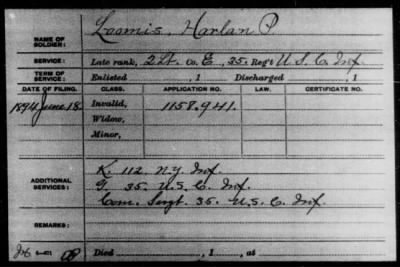 NAME OF SOLDIER: Loomis, Harlan P.
SERVICE: Late rank, 2 Lt. Co. E, 35. Reg't U. S. C. Inf.
TERM OF SERVICE: Enlisted , 1 Discharged , 1
DATE OF FILING. CLASS. APPLICATION NO. LAW. CERTIFICATE NO.
1894 June 18 Invalid, 1158.941.
Widow,
Minor,
ADDITIONAL SERVICES: K. 112. N.Y. Inf.
G. 35. U.S. C. Inf.
Com. Sergt. 35. U.S. C. Inf.
REMARKS:
Died , 1 , at